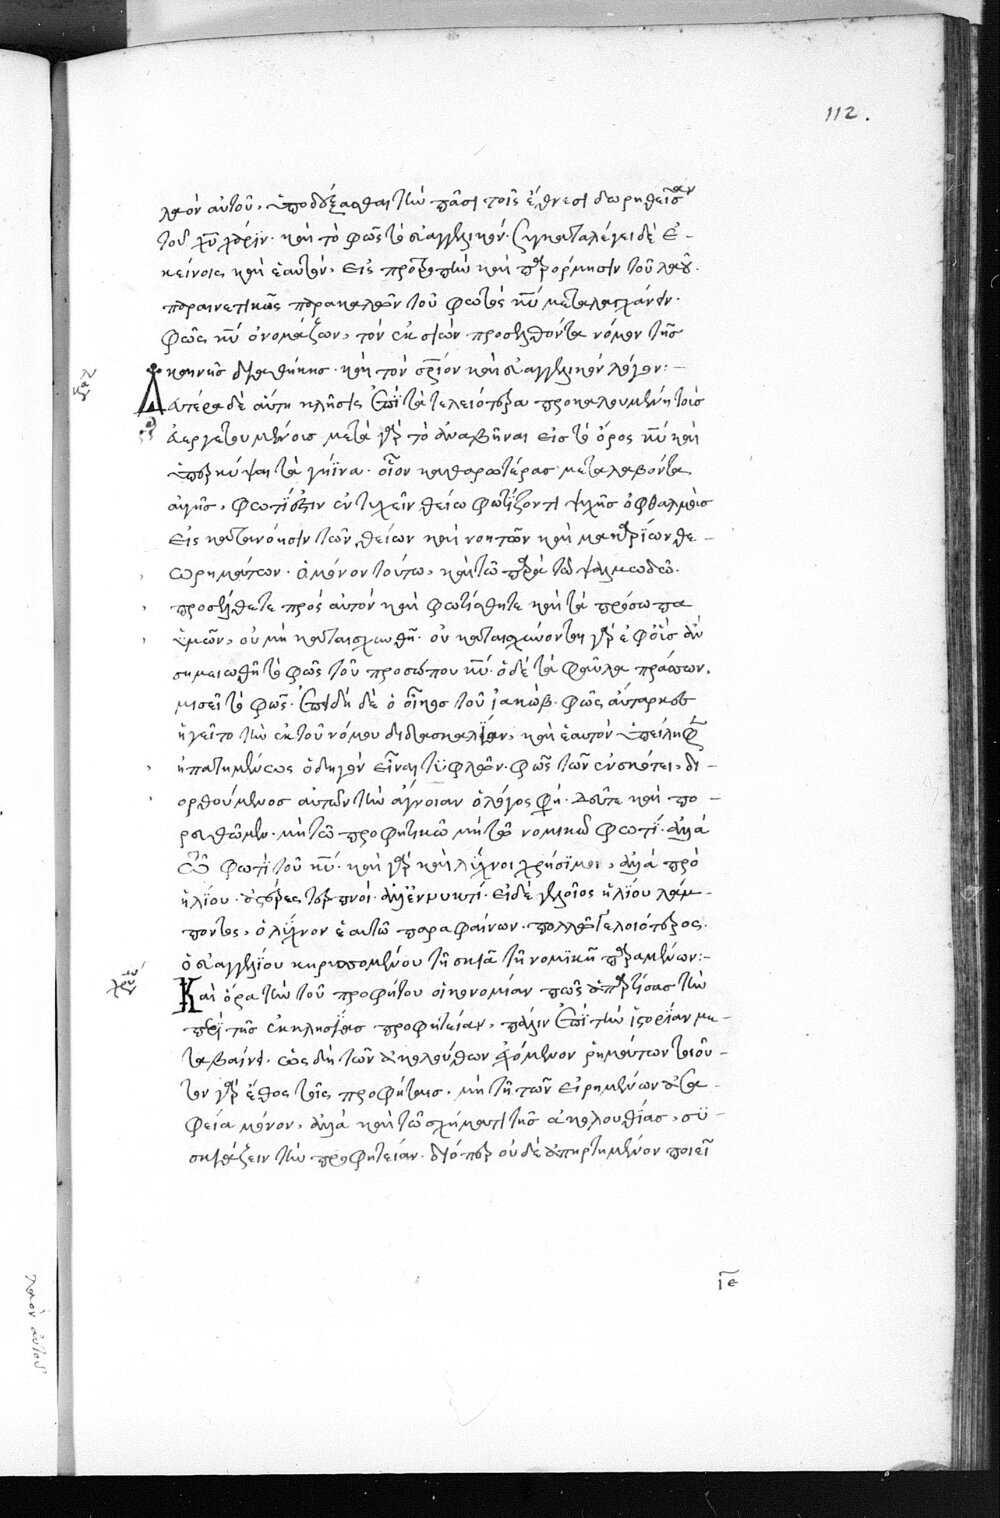 112.
λαὸν αὐτοῦ, ὑποδέξασθαι τὴν πᾶσι τοῖς ἔθνεσι δωρηθεῖσαν
τοῦ χῦ χάριν· καὶ τὸ φῶς τὸ εὐαγγελικόν. Συγκαταλέγει δὲ ἐ-
κείνοις καὶ ἑαυτὸν, εἰς προτροπὴν καὶ παρόρμησιν τοῦ λαοῦ.
παραινετικῶς παρακαλῶν τοῦ φωτὸς κῦ μεταλαγχάνειν.
φῶς κῦ ὀνομάζων, τὸν ἐκ σιὼν προσελθόντα νόμον τῆς
καινῆς διαθήκης. καὶ τὸν σριον καὶ εὐαγγελικὸν λόγον:-
Δευτέρα δὲ αὕτη κλῆσις ἐπὶ τὰ τελειότερα προκαλουμένη τοὺς
μετὰ γὰρ τὸ ἀναβῆναι εἰς τὸ ὄρος κῦ καὶ
ὑπερκύψαι τὰ γήϊνα. οἷον καθαρωτέρας μεταλαβόντα
αὐγῆς, φωτίζειν ἐντυχεῖν θείω φωτίζοντι ψυχῆς ὀφθαλμοὺς
εἰς κατανόησιν τῶν θείων καὶ νοητῶν καὶ μακαρίων θε-
ωρημάτων. ὅμοιον τούτω, καὶ τῶ παρὰ τῶ ψαλμωδῶ.
προσέλθετε πρὸς αὐτὸν καὶ φωτίσθητε καὶ τὰ πρόσωπα
ὑμῶν, οὐ μὴ καταισχυνθῆ. οὐ καταισχύνονται γὰρ ἐφ' οἷς ἂν
σημειωθῆ τὸ φῶς τοῦ προσώπου κῦ. ὁ δὲ τὰ φαῦλα πράσσων,
μισεῖ τὸ φῶς. ἐπειδὴ δὲ ὁ οἶκος τοῦ ἰακὼβ. φῶς αὔταρκες
ἡγεῖτο τὴν ἐκ τοῦ νόμου διδασκαλίαν, καὶ ἑαυτὸν ὑπείληφεν
ἠπατημένως ὁδηγὸν εἶναι τυφλῶν. φῶς τῶν ἐν σκότει, δι-
ορθούμενος αὐτῶν τὴν ἄγνοιαν ὁ λόγος φησί. Δεῦτε καὶ πο-
ρευθῶμεν. μὴ τῶ προφητικῶ μὴ τῶ νομικῶ φωτὶ. ἀλλὰ
τῶ φωτὶ τοῦ κῦ. καὶ γὰρ καὶ λύχνοι χρήσιμοι, ἀλλὰ πρὸ
ἡλίου. ἀστέρες τερπνοὶ. ἀλλ' ἐν νυκτί. εἰ δὲ γελοῖος ἡλίου λάμ-
ποντος, ὁ λύχνον ἑαυτῶ παραφαίνων. πολλῶ γελοιότερος.
ὁ εὐαγγελίου κηρυσσομένου τῆ σκιᾶ τῆ νομικῆ παραμένων:-
Καὶ ὅρα τὴν τοῦ προφήτου οἰκονομίαν πῶς ἀπαρτίσας τὴν
περὶ τῆς ἐκκλησίας προφητείαν, πάλιν ἐπὶ τὴν ἱστορίαν με-
ταβαίνει. ὡς δὴ τῶν ἀκολούθων ἐχόμενον ῥημάτων τοιοῦ-
τον γὰρ ἔθος τοῖς προφήταις. μὴ τῆ τῶν εἰρημένων ἀσα-
φεία μόνον, ἀλλὰ καὶ τῶ σχήματι τῆς ἀκολουθίας, συ-
σκιάζειν τὴν προφητείαν. διόπερ οὐδὲ ἀπηρτημένον ποιεῖ
ιε
λαὸν αὐτοῦ